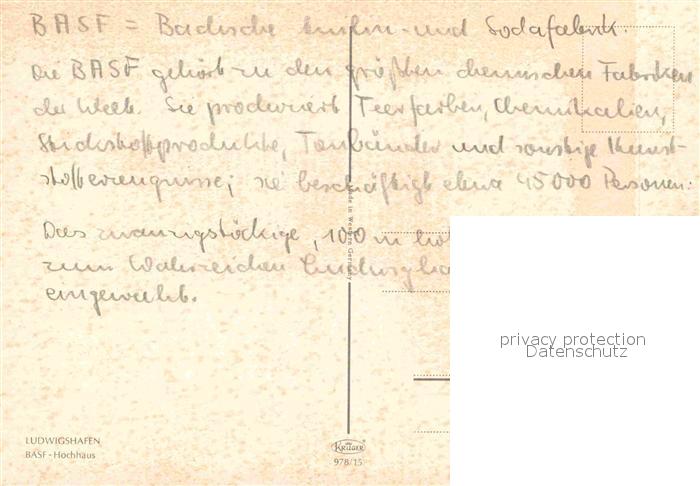 BASF = Badische Anilin- und Sodafabrik.
Die BASF gehört zu den größten chemischen Fabriken
der Welt. Sie produziert Teerfarben, Chemikalien,
Stickstoffprodukte, Tonbänder und sonstige Kunst-
stofferzeugnisse; sie beschäftigt etwa 45000 Personen.
Das zwanzigstöckige, 100 m
zum Wahrzeichen
eingeweiht.
Made in Western Germany
privacy protection
Datenschutz
LUDWIGSHAFEN
BASF - Hochhaus
KRÜGER
978/15